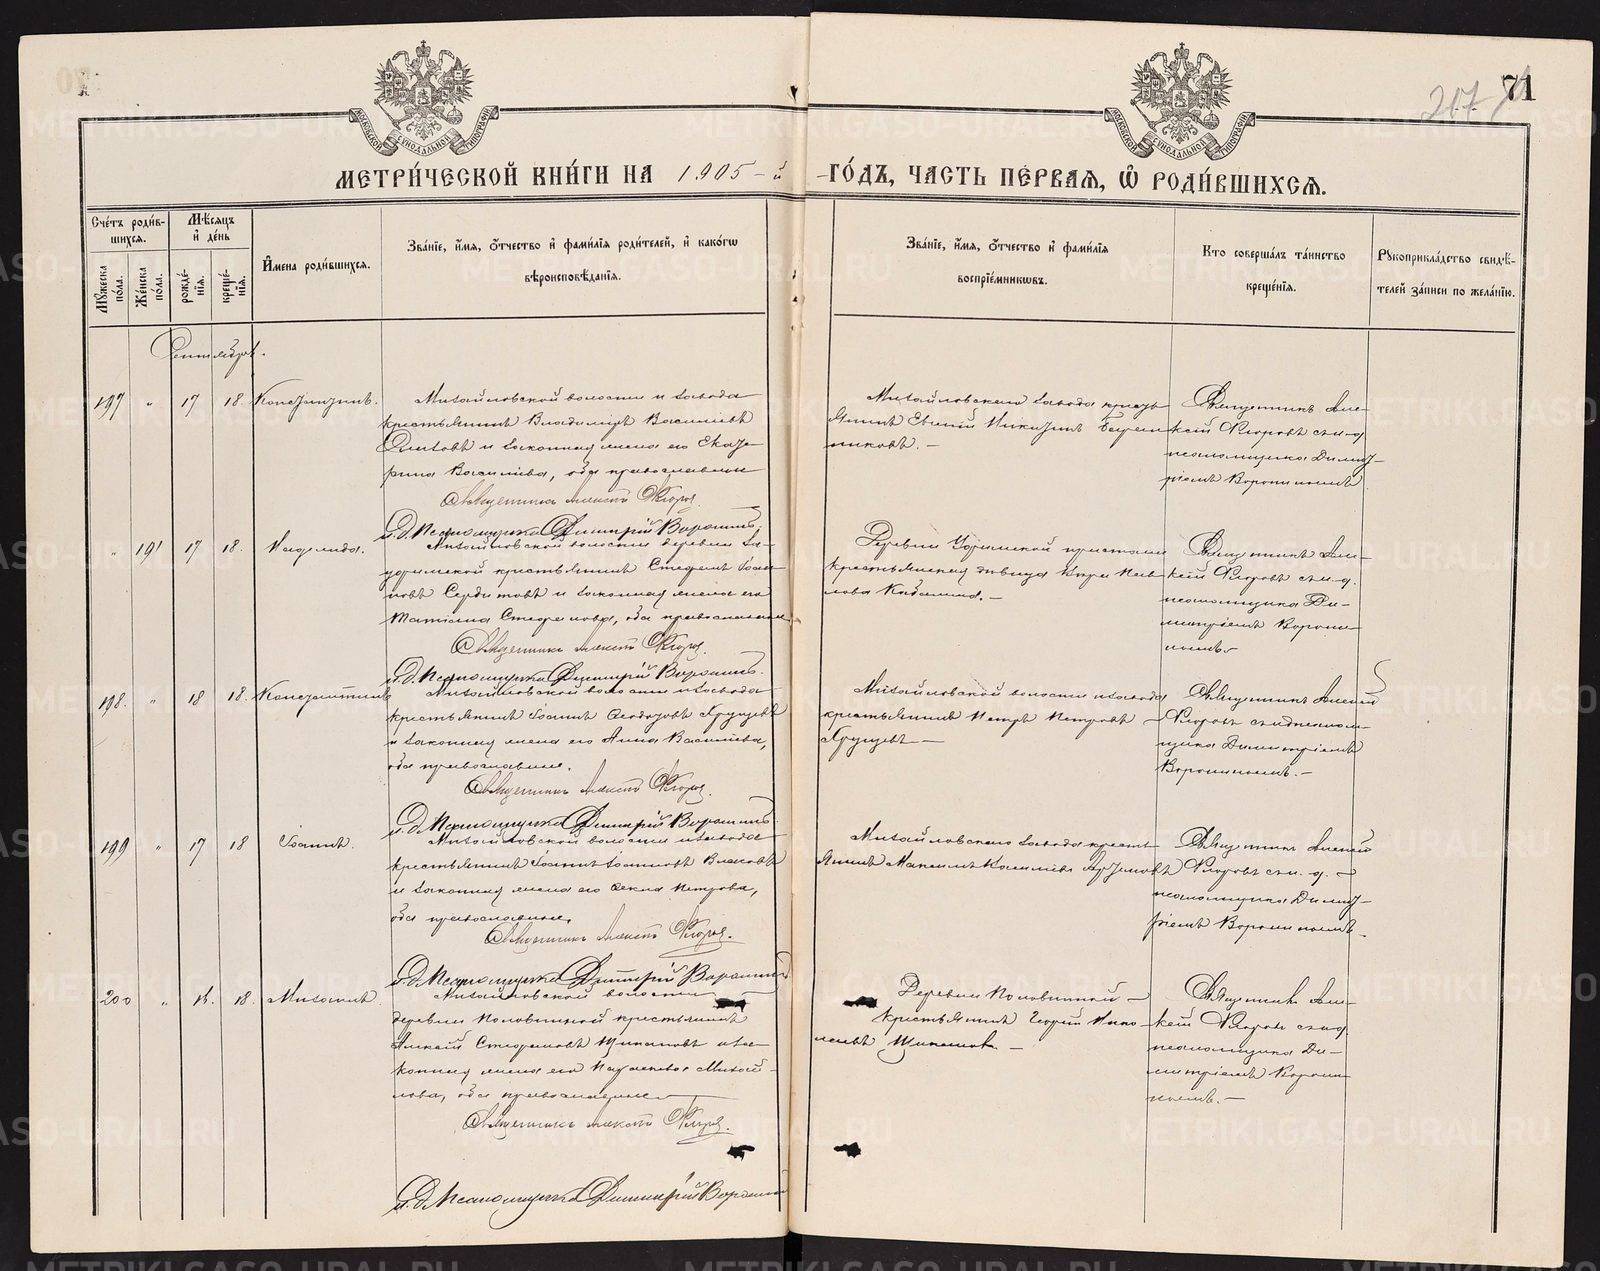 217
71
МЕТРИ́ЧЕСКОЙ КНИ́ГИ НА 1905-й ГО́ДЪ, ЧАСТЬ ПЕ́РВАѦ, Ѡ҆ РОДИ́ВШИХСѦ.
МОСКОВСКОЙ СѴНОДАЛЬНОЙ ТИПОГРАФІИ
МОСКОВСКОЙ СѴНОДАЛЬНОЙ ТИПОГРАФІИ
Сче́тъ роди́в-
шихсѧ.
Мꙋ́жеска по́ла.
Же́нска по́ла.
Мѣ́сѧцъ
и҆ де́нь
рожде́-
нїѧ.
креще́-
нїѧ.
И҆мена роди́вшихсѧ.
Зва́нїе, и҆́мѧ, ѻ҆́тчество и҆ фами́лїѧ роди́телей, и҆ како́гѡ
вѣроисповѣ́данїѧ.
Зва́нїе, и҆́мѧ, ѻ҆́тчество и҆ фами́лїѧ
воспрїе́мникѡвъ.
Кто соверша́лъ та́инство
креще́нїѧ.
Рꙋкоприкла́дство свидѣ́-
телей за́писи по жела́нїю.
Сентябрь.
197 " 17 18 Константинъ.
Михайловской волости и завода
крестьянинъ Владиміръ Васильевъ
и законная жена его Екате-
рина Васильева, оба православные
Священникъ Алексій Флоровъ
и.д. Псаломщика Димитрій Воронинъ.
Михайловскаго завода кресть-
янинъ Евгеній Никитинъ
никовъ. —
Священникъ Але-
ксій Флоровъ съ и.д.
псаломщика Димит-
ріемъ Воронинымъ
" 191 17 18. Надежда.
Михайловской волости деревни
крестьянинъ Стефанъ Іоан-
новъ Сердитовъ и законная жена его
Татіана Стефанова, оба православные
Священникъ Алексій Флоровъ.
и.д. Псаломщика Димитрій Воронинъ.
Деревни Уфимской пристани
крестьянская дѣвица Пав-
лова —
Священникъ Але-
ксій Флоровъ съ и.д.
псаломщика Ди-
митріемъ Ворони-
нымъ.
198. " 18 18. Константинъ
Михайловской волости и завода
крестьянинъ Іоаннъ Ѳеодоровъ Хрущевъ
и законная жена его Анна Васильева,
оба православные.
Священникъ Алексій Флоровъ.
и.д. Псаломщика Димитрій Воронинъ
Михайловской волости и завода
крестьянинъ Петръ Петровъ
Хрущевъ —
Священникъ Алексій
Флоровъ съ и.д. псалом-
щика Димитріемъ
Воронинымъ. —
199 " 17 18 Іоаннъ.
Михайловской волости и завода
крестьянинъ Іоаннъ Іоанновъ Власовъ
и законная жена его Ѳекла Петрова,
оба православные.
Священникъ Алексій Флоровъ.
и.д. Псаломщика Димитрій Воронинъ
Михайловскаго завода кресть-
янинъ Максимъ
Священникъ Алексій
Флоровъ съ и.д. —
псаломщика Димит-
ріемъ Воронинымъ.
200 " 16. 18. Михаилъ
Михайловской волости
деревни Половинной крестьянинъ
Алексій Стефановъ и за-
конная жена его Параскева Михай-
лова, оба православные —
Священникъ Алексій Флоровъ.
и.д. Псаломщика Димитрій Воронинъ
Деревни Половинной —
крестьянинъ Георгій Нико-
лаевъ —
Священникъ Але-
ксій Флоровъ съ и.д.
псаломщика Ди-
митріемъ Ворони-
нымъ. —
METRIKI.GASO-URAL.RU